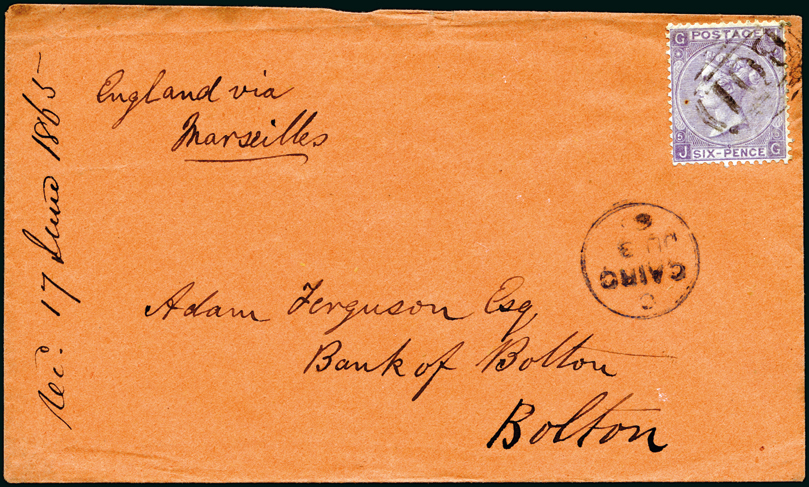 Rec. 17 June 1865
England via
Marseilles
G POSTAGE
J SIX-PENCE G
C
CAIRO
JU 3
Adam Ferguson Esq
Bank of Bolton
Bolton